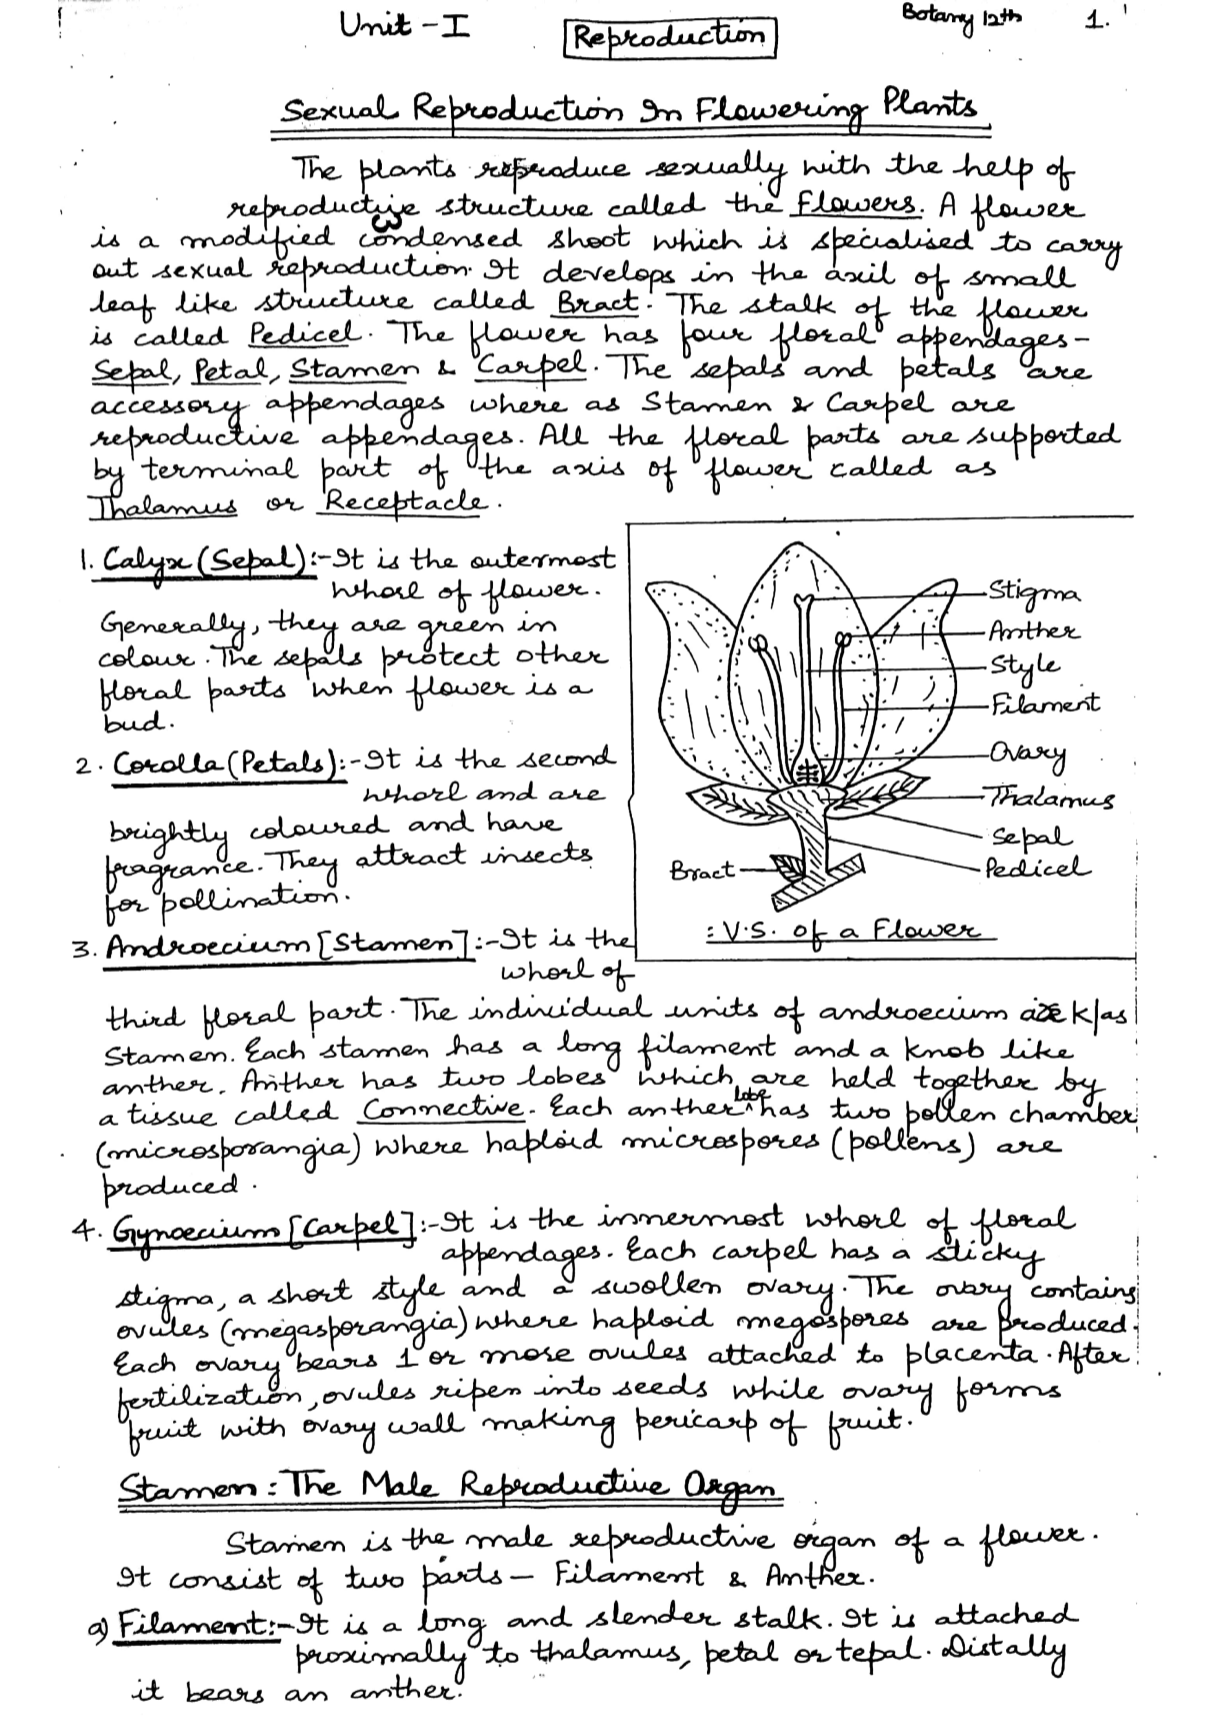 Unit - I
Botany 12th
1.
Reproduction
Sexual Reproduction In Flowering Plants
The plants reproduce sexually with the help of
reproductive structure called the Flowers. A flower
is a modified condensed shoot which is specialised to carry
out sexual reproduction. It develops in the axil of small
leaf like structure called Bract. The stalk of the flower
is called Pedicel. The flower has four floral appendages-
Sepal, Petal, Stamen & Carpel. The sepals and petals are
accessory appendages where as Stamen & Carpel are
reproductive appendages. All the floral parts are supported
by terminal part of the axis of flower called as
Thalamus or Receptacle.
1. Calyx (Sepal):-It is the outermost
whorl of flower.
Generally, they are green in
colour. The sepals protect other
floral parts when flower is a
bud.
2. Corolla (Petals):-It is the second
whorl and are
brightly coloured and have
fragrance. They attract insects
for pollination.
Stigma
Anther
Style
Filament
Ovary
Thalamus
Sepal
Pedicel
Bract
: V.S. of a Flower
3. Androecium [Stamen]:-It is the
whorl of
third floral part. The individual units of androecium are k/as
Stamen. Each stamen has a long filament and a knob like
anther. Anther has two lobes which are held together by
a tissue called Connective. Each anther lobe has two pollen chamber
(microsporangia) where haploid microspores (pollens) are
produced.
4. Gynoecium [Carpel]:-It is the innermost whorl of floral
appendages. Each carpel has a sticky
stigma, a short style and a swollen ovary. The ovary contains
ovules (megasporangia) where haploid megospores are produced.
Each ovary bears 1 or more ovules attached to placenta. After
fertilization, ovules ripen into seeds while ovary forms
fruit with ovary wall making pericarp of fruit.
Stamen : The Male Reproductive Organ
Stamen is the male reproductive organ of a flower.
It consist of two parts - Filament & Anther.
a) Filament:-It is a long and slender stalk. It is attached
proximally to thalamus, petal or tepal. Distally
it bears an anther.